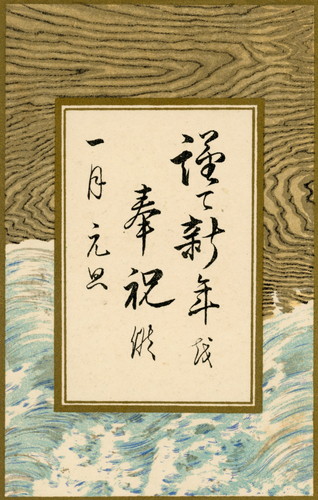 謹て新年を
奉祝候
一月元旦